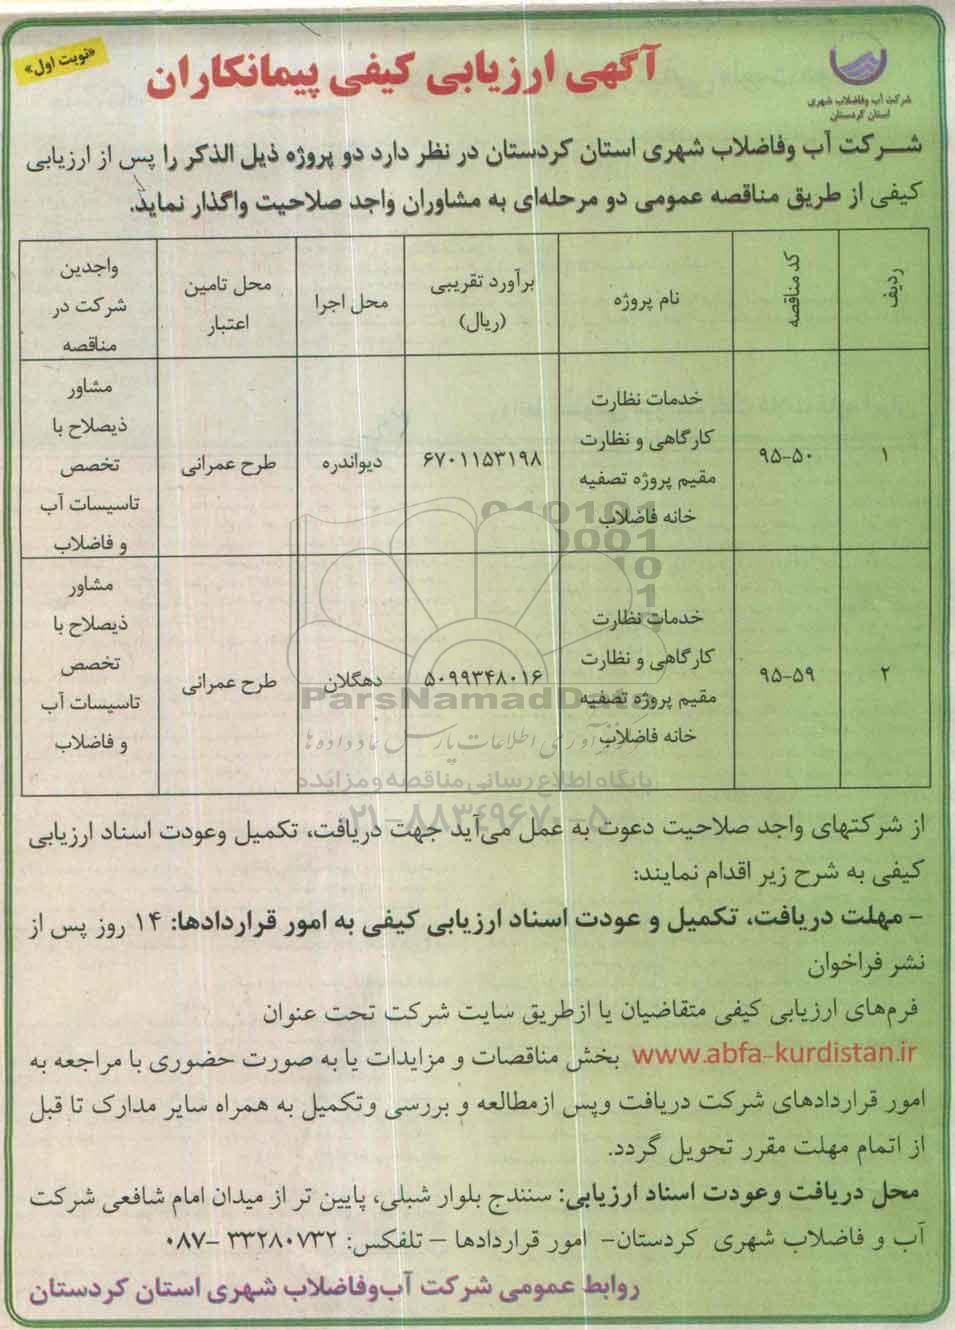 «نوبت اول»
آگهی ارزیابی کیفی پیمانکاران
شرکت آب وفاضلاب شهری
استان کردستان
شرکت آب وفاضلاب شهری استان کردستان در نظر دارد دو پروژه ذیل الذکر را پس از ارزیابی
کیفی از طریق مناقصه عمومی دو مرحله‌ای به مشاوران واجد صلاحیت واگذار نماید.
ردیف
کد مناقصه
نام پروژه
برآورد تقریبی
(ریال)
محل اجرا
محل تامین
اعتبار
واجدین
شرکت در
مناقصه
۱
۹۵-۵۰
خدمات نظارت
کارگاهی و نظارت
مقیم پروژه تصفیه
خانه فاضلاب
۶۷۰۱۱۵۳۱۹۸
دیواندره
طرح عمرانی
مشاور
ذیصلاح با
تخصص
تاسیسات آب
و فاضلاب
۲
۹۵-۵۹
خدمات نظارت
کارگاهی و نظارت
مقیم پروژه تصفیه
خانه فاضلاب
۵۰۹۹۳۴۸۰۱۶
دهگلان
طرح عمرانی
مشاور
ذیصلاح با
تخصص
تاسیسات آب
و فاضلاب
010101
0001
10
1
ParsNamadData
فن آوری اطلاعات پارس نماد داده ها
پایگاه اطلاع رسانی مناقصه و مزایده
۰۲۱-۸۸۳۴۹۶۷۰-۵
از شرکتهای واجد صلاحیت دعوت به عمل می‌آید جهت دریافت، تکمیل وعودت اسناد ارزیابی
کیفی به شرح زیر اقدام نمایند:
- مهلت دریافت، تکمیل و عودت اسناد ارزیابی کیفی به امور قراردادها: ۱۴ روز پس از
نشر فراخوان
فرم‌های ارزیابی کیفی متقاضیان یا ازطریق سایت شرکت تحت عنوان
www.abfa-kurdistan.ir بخش مناقصات و مزایدات یا به صورت حضوری با مراجعه به
امور قراردادهای شرکت دریافت وپس ازمطالعه و بررسی وتکمیل به همراه سایر مدارک تا قبل
از اتمام مهلت مقرر تحویل گردد.
محل دریافت وعودت اسناد ارزیابی: سنندج بلوار شبلی، پایین تر از میدان امام شافعی شرکت
آب و فاضلاب شهری کردستان- امور قراردادها - تلفکس: ۳۳۲۸۰۷۳۲ -۰۸۷
روابط عمومی شرکت آب‌وفاضلاب شهری استان کردستان